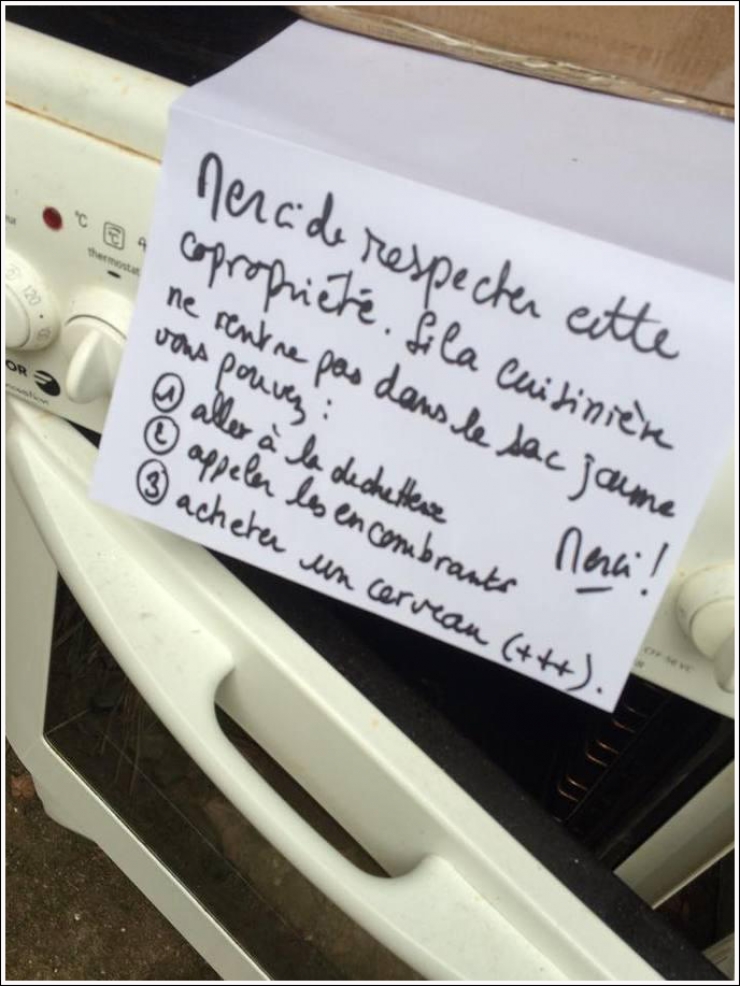 Merci de respecter cette
copropriété. Si la cuisinière
ne rentre pas dans le sac jaune
vous pouvez :
① aller à la dechetterie
② appeler les encombrants
③ acheter un cerveau (+++).
Merci !
°C
thermostat
120